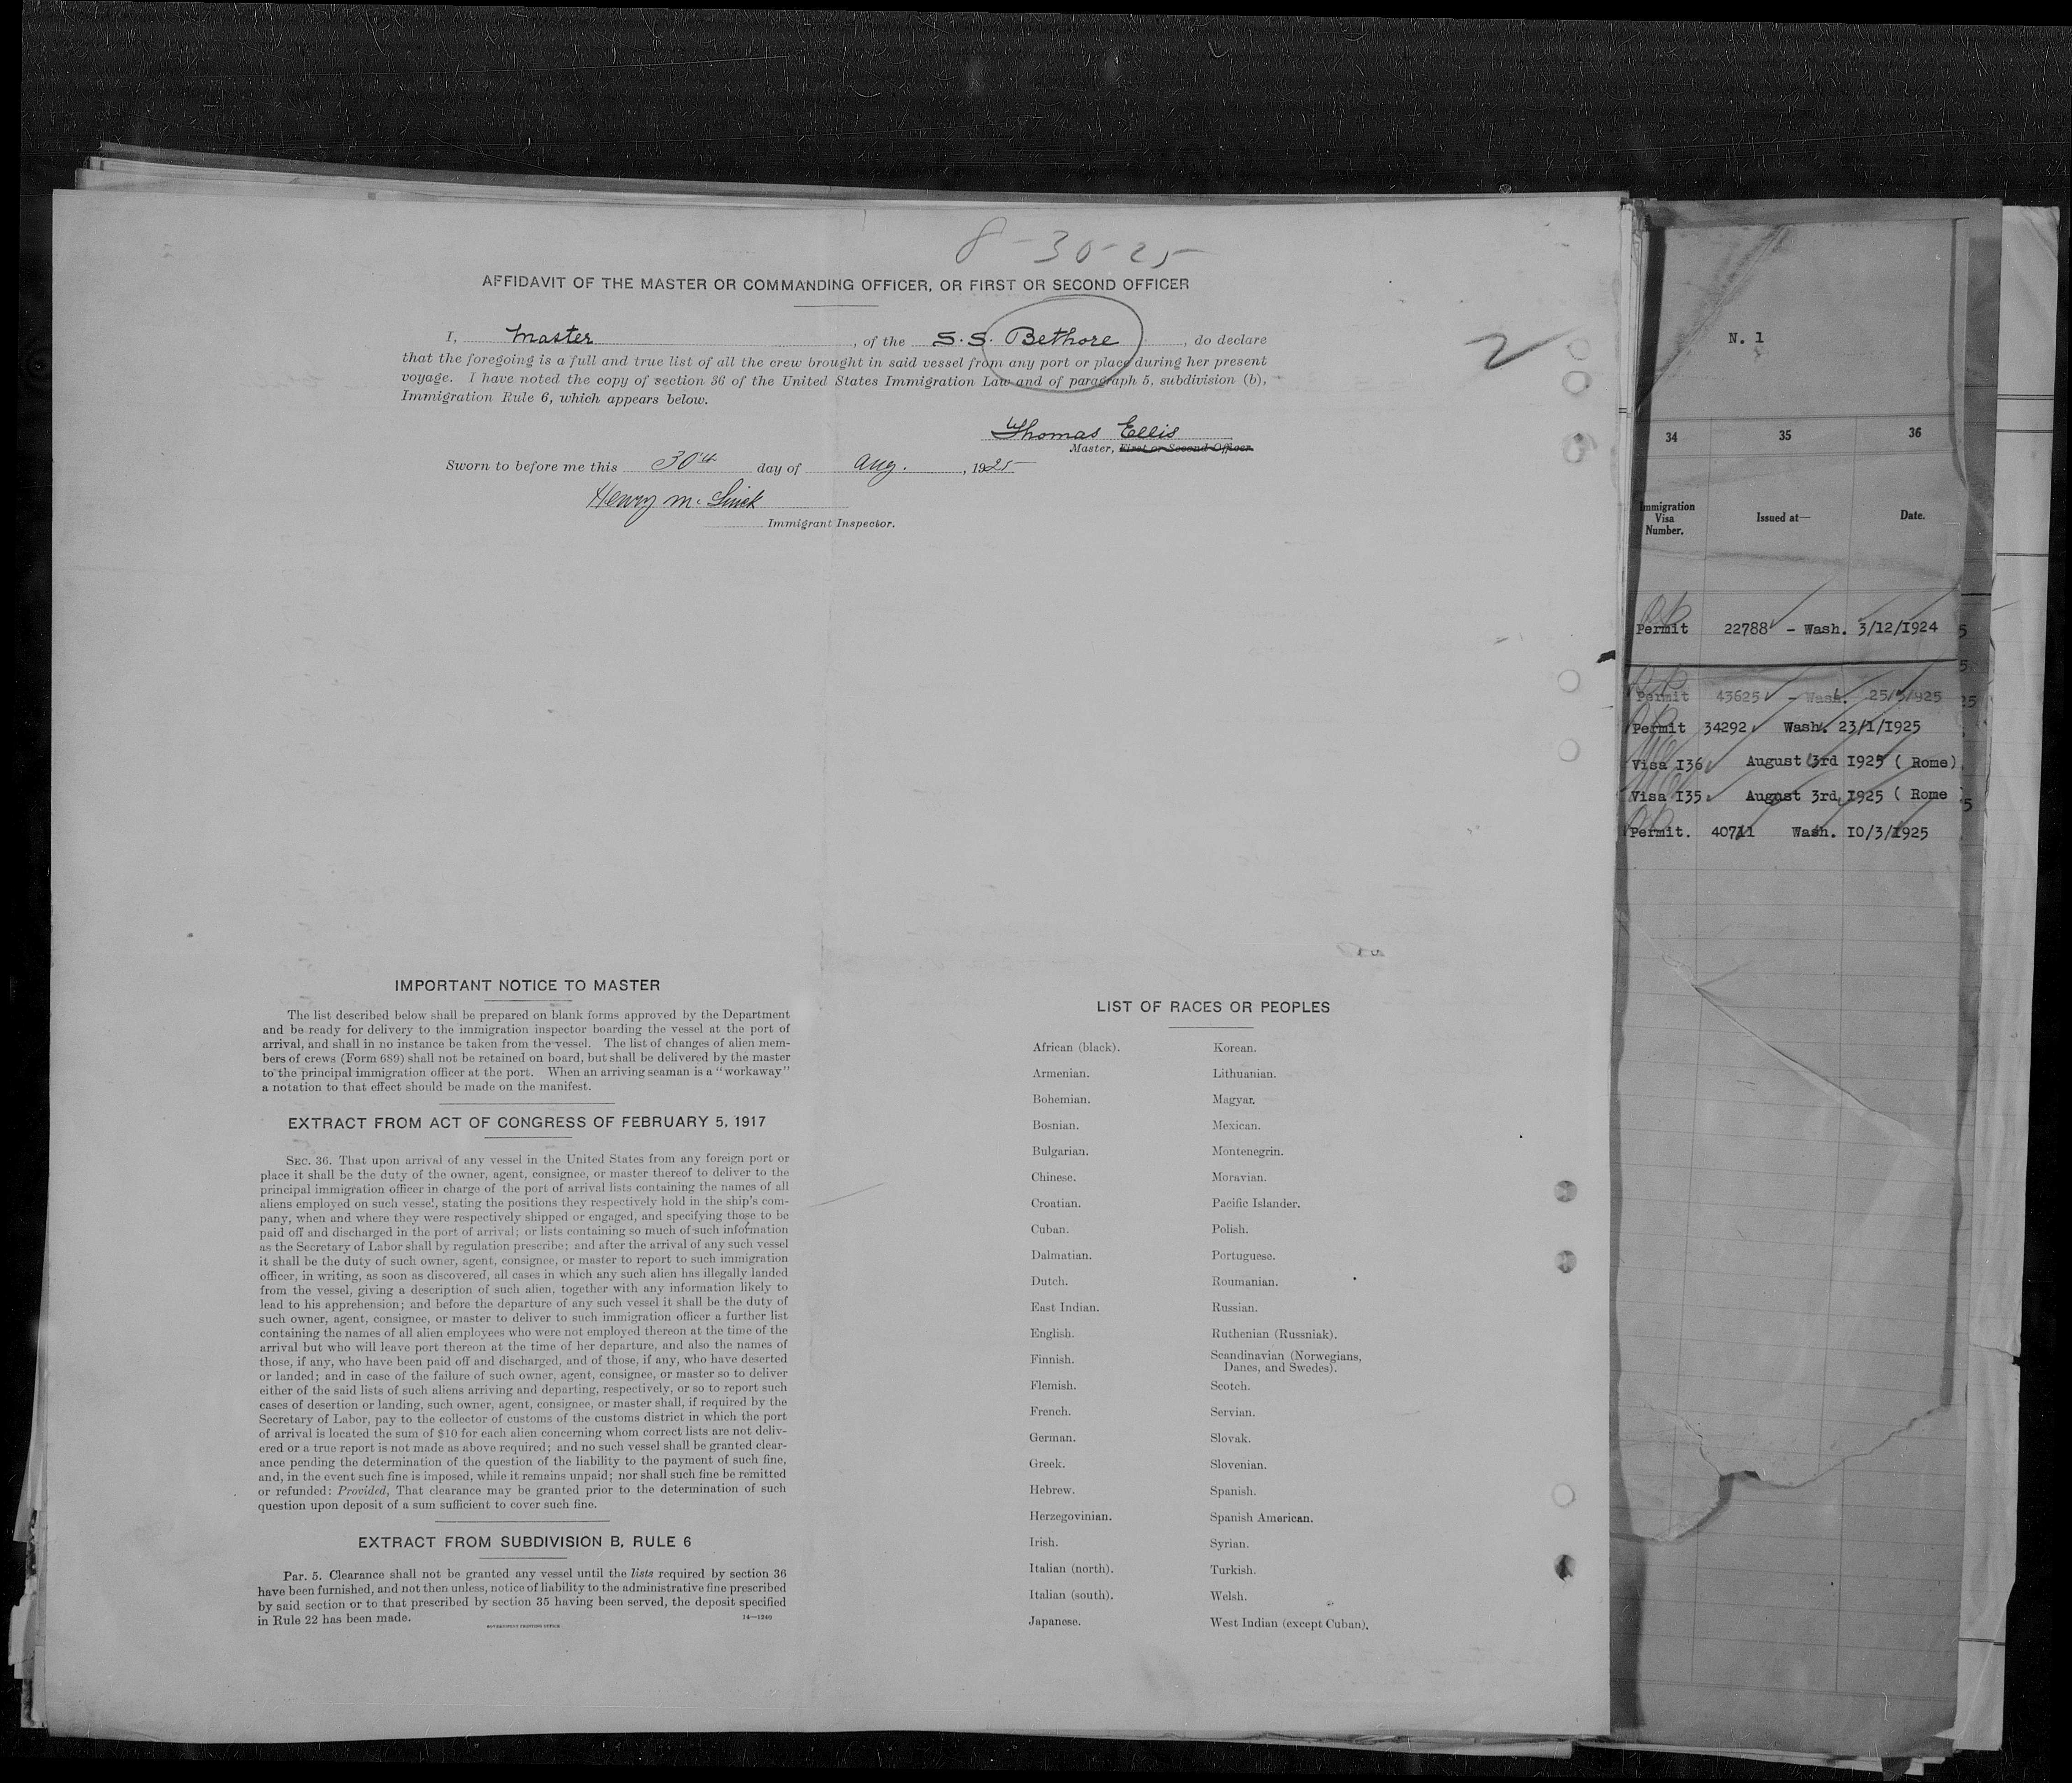 8-30-25
AFFIDAVIT OF THE MASTER OR COMMANDING OFFICER, OR FIRST OR SECOND OFFICER
I, Master, of the S.S. Bethore, do declare
that the foregoing is a full and true list of all the crew brought in said vessel from any port or place during her present
voyage. I have noted the copy of section 36 of the United States Immigration Law and of paragraph 5, subdivision (b),
Immigration Rule 6, which appears below.
2
Thomas Ellis
Master, First or Second Officer.
Sworn to before me this 30th day of Aug., 1925
Henry
Immigrant Inspector.
IMPORTANT NOTICE TO MASTER
The list described below shall be prepared on blank forms approved by the Department
and be ready for delivery to the immigration inspector boarding the vessel at the port of
arrival, and shall in no instance be taken from the vessel. The list of changes of alien mem-
bers of crews (Form 689) shall not be retained on board, but shall be delivered by the master
to the principal immigration officer at the port. When an arriving seaman is a "workaway"
a notation to that effect should be made on the manifest.
EXTRACT FROM ACT OF CONGRESS OF FEBRUARY 5, 1917
SEC. 36. That upon arrival of any vessel in the United States from any foreign port or
place it shall be the duty of the owner, agent, consignee, or master thereof to deliver to the
principal immigration officer in charge of the port of arrival lists containing the names of all
aliens employed on such vessel, stating the positions they respectively hold in the ship's com-
pany, when and where they were respectively shipped or engaged, and specifying those to be
paid off and discharged in the port of arrival; or lists containing so much of such information
as the Secretary of Labor shall by regulation prescribe; and after the arrival of any such vessel
it shall be the duty of such owner, agent, consignee, or master to report to such immigration
officer, in writing, as soon as discovered, all cases in which any such alien has illegally landed
from the vessel, giving a description of such alien, together with any information likely to
lead to his apprehension; and before the departure of any such vessel it shall be the duty of
such owner, agent, consignee, or master to deliver to such immigration officer a further list
containing the names of all alien employees who were not employed thereon at the time of the
arrival but who will leave port thereon at the time of her departure, and also the names of
those, if any, who have been paid off and discharged, and of those, if any, who have deserted
or landed; and in case of the failure of such owner, agent, consignee, or master so to deliver
either of the said lists of such aliens arriving and departing, respectively, or so to report such
cases of desertion or landing, such owner, agent, consignee, or master shall, if required by the
Secretary of Labor, pay to the collector of customs of the customs district in which the port
of arrival is located the sum of $10 for each alien concerning whom correct lists are not deliv-
ered or a true report is not made as above required; and no such vessel shall be granted clear-
ance pending the determination of the question of the liability to the payment of such fine,
and, in the event such fine is imposed, while it remains unpaid; nor shall such fine be remitted
or refunded: Provided, That clearance may be granted prior to the determination of such
question upon deposit of a sum sufficient to cover such fine.
EXTRACT FROM SUBDIVISION B, RULE 6
Par. 5. Clearance shall not be granted any vessel until the lists required by section 36
have been furnished, and not then unless, notice of liability to the administrative fine prescribed
by said section or to that prescribed by section 35 having been served, the deposit specified
in Rule 22 has been made.
14—1240
GOVERNMENT PRINTING OFFICE
LIST OF RACES OR PEOPLES
African (black).
Armenian.
Bohemian.
Bosnian.
Bulgarian.
Chinese.
Croatian.
Cuban.
Dalmatian.
Dutch.
East Indian.
English.
Finnish.
Flemish.
French.
German.
Greek.
Hebrew.
Herzegovinian.
Irish.
Italian (north).
Italian (south).
Japanese.
Korean.
Lithuanian.
Magyar.
Mexican.
Montenegrin.
Moravian.
Pacific Islander.
Polish.
Portuguese.
Roumanian.
Russian.
Ruthenian (Russniak).
Scandinavian (Norwegians,
Danes, and Swedes).
Scotch.
Servian.
Slovak.
Slovenian.
Spanish.
Spanish American.
Syrian.
Turkish.
Welsh.
West Indian (except Cuban).
N. 1
34 35 36
Immigration
Visa
Number.
Issued at—
Date.
Permit 22788 - Wash. 3/12/1924
Permit 43625 - Wash. 25/5/925
Permit 34292 Wash. 23/1/1925
Visa I36 August 3rd 1925 ( Rome)
Visa I35 August 3rd, 1925 ( Rome
Permit. 40711 Wash. 10/3/1925